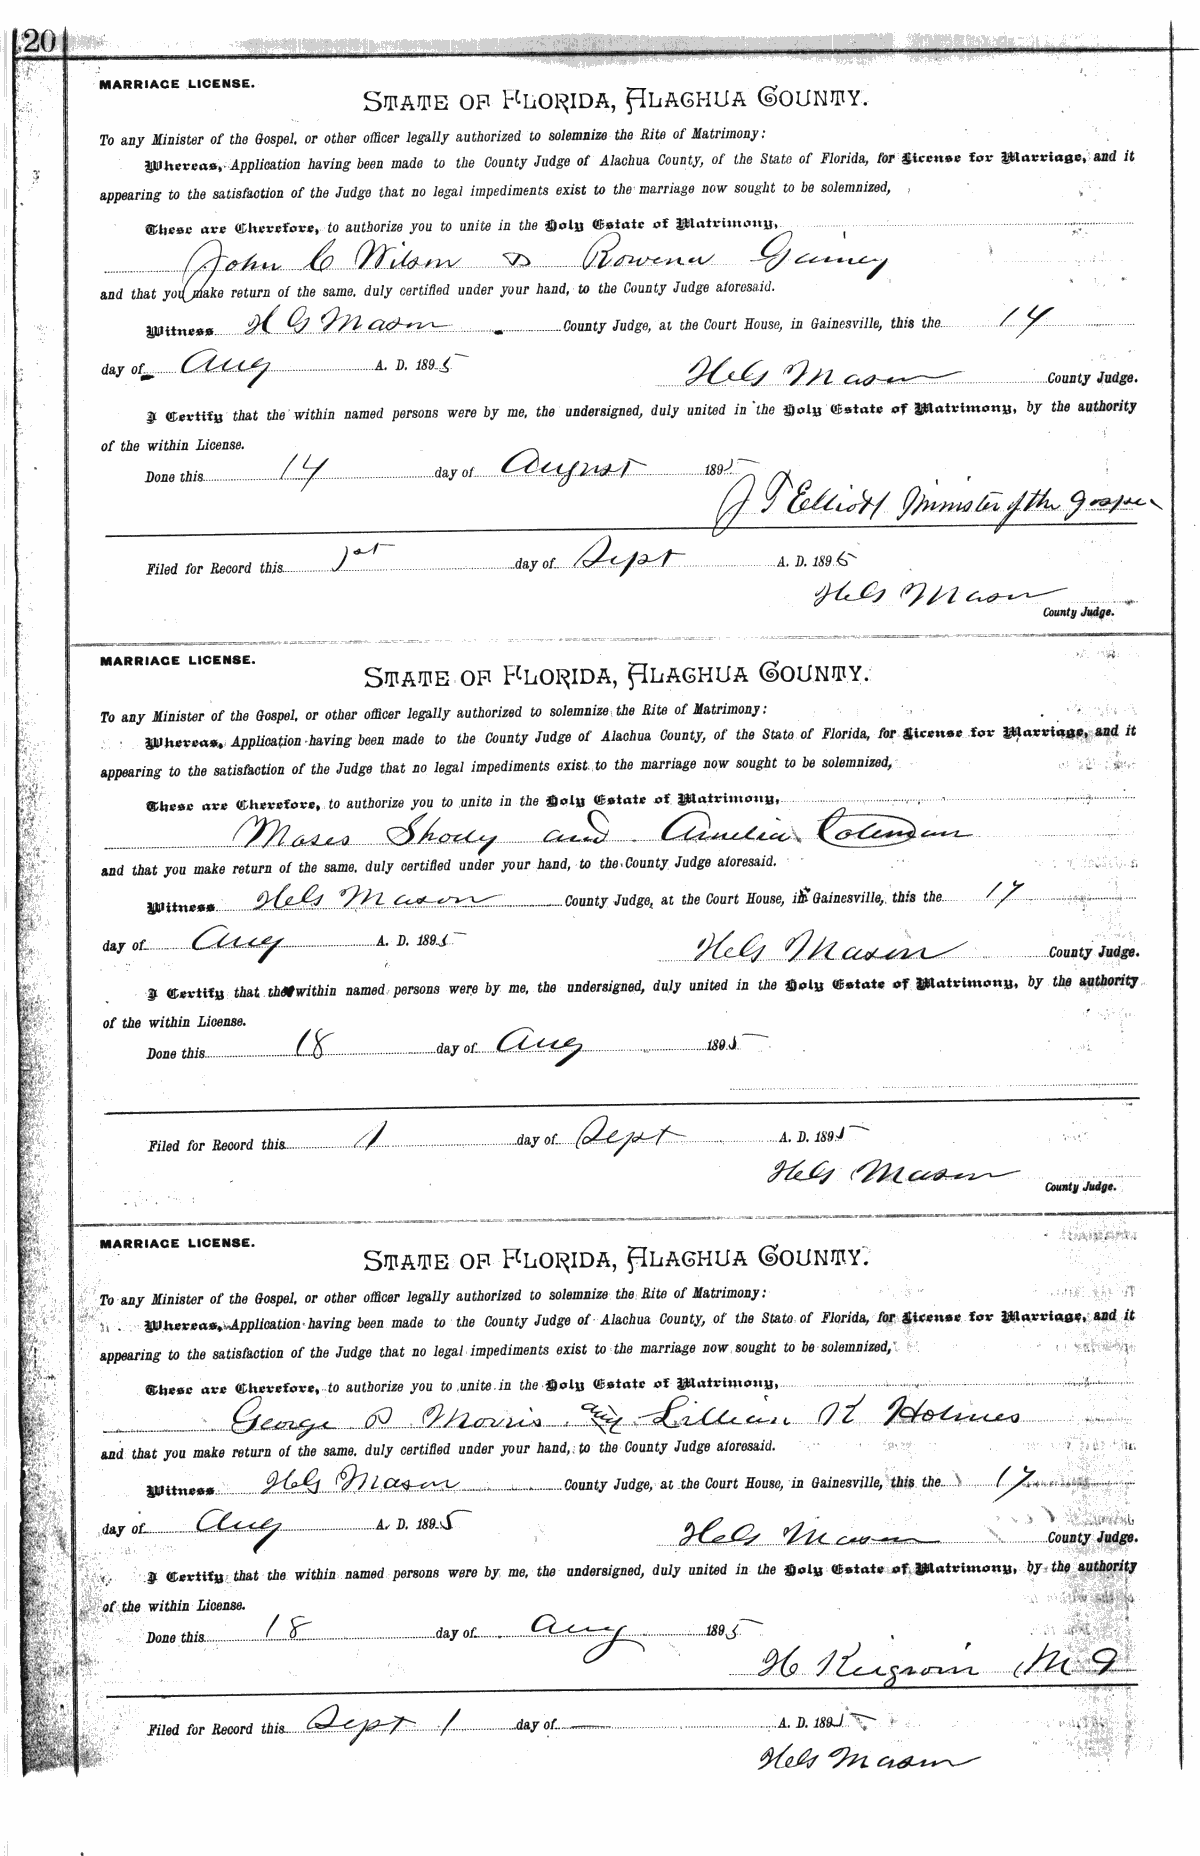 20
MARRIAGE LICENSE.
STATE OF FLORIDA, ALACHUA COUNTY.
To any Minister of the Gospel, or other officer legally authorized to solemnize the Rite of Matrimony:
Whereas, Application having been made to the County Judge of Alachua County, of the State of Florida, for License for Marriage, and it
appearing to the satisfaction of the Judge that no legal impediments exist to the marriage now sought to be solemnized,
These are Therefore, to authorize you to unite in the Holy Estate of Matrimony,
John C Wilson & Rowena Gainey
and that you make return of the same, duly certified under your hand, to the County Judge aforesaid.
Witness H G Mason County Judge, at the Court House, in Gainesville, this the 14
day of Aug A. D. 1895 H G Mason County Judge.
I Certify that the within named persons were by me, the undersigned, duly united in the Holy Estate of Matrimony, by the authority
of the within License.
Done this 14 day of August 1895
J T Elliott Minister of the Gospel
Filed for Record this 1st day of Sept A. D. 1895
H G Mason
County Judge.
MARRIAGE LICENSE.
STATE OF FLORIDA, ALACHUA COUNTY.
To any Minister of the Gospel, or other officer legally authorized to solemnize the Rite of Matrimony:
Whereas, Application having been made to the County Judge of Alachua County, of the State of Florida, for License for Marriage, and it
appearing to the satisfaction of the Judge that no legal impediments exist to the marriage now sought to be solemnized,
These are Therefore, to authorize you to unite in the Holy Estate of Matrimony,
Moses Shody and Amelia Coleman
and that you make return of the same, duly certified under your hand, to the County Judge aforesaid.
Witness H G Mason County Judge, at the Court House, in Gainesville, this the 17
day of Aug A. D. 1895 H G Mason County Judge.
I Certify that the within named persons were by me, the undersigned, duly united in the Holy Estate of Matrimony, by the authority
of the within License.
Done this 18 day of Aug 1895
Filed for Record this 1 day of Sept A. D. 1895
H G Mason
County Judge.
MARRIAGE LICENSE.
STATE OF FLORIDA, ALACHUA COUNTY.
To any Minister of the Gospel, or other officer legally authorized to solemnize the Rite of Matrimony:
Whereas, Application having been made to the County Judge of Alachua County, of the State of Florida, for License for Marriage, and it
appearing to the satisfaction of the Judge that no legal impediments exist to the marriage now sought to be solemnized,
These are Therefore, to authorize you to unite in the Holy Estate of Matrimony,
George D Morris and Lillian K Holmes
and that you make return of the same, duly certified under your hand, to the County Judge aforesaid.
Witness H G Mason County Judge, at the Court House, in Gainesville, this the 17
day of Aug A. D. 1895 H G Mason County Judge.
I Certify that the within named persons were by me, the undersigned, duly united in the Holy Estate of Matrimony, by the authority
of the within License.
Done this 18 day of Aug 1895
H M G
Filed for Record this Sept 1 day of — A. D. 1895
H G Mason